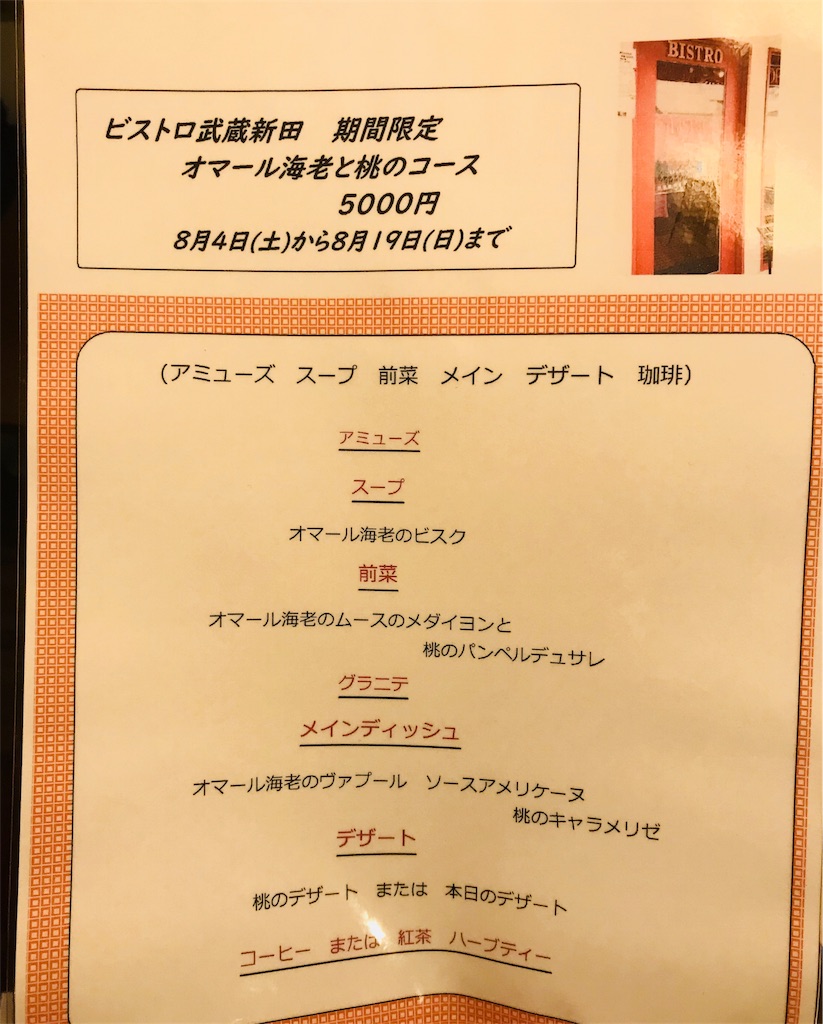 BISTRO
ビストロ武蔵新田　期間限定
オマール海老と桃のコース
5000円
8月4日(土)から8月19日(日)まで
（アミューズ　スープ　前菜　メイン　デザート　珈琲）
アミューズ
スープ
オマール海老のビスク
前菜
オマール海老のムースのメダイヨンと
桃のパンペルデュサレ
グラニテ
メインディッシュ
オマール海老のヴァプール　ソースアメリケーヌ
桃のキャラメリゼ
デザート
桃のデザート　または　本日のデザート
コーヒー　または　紅茶　ハーブティー